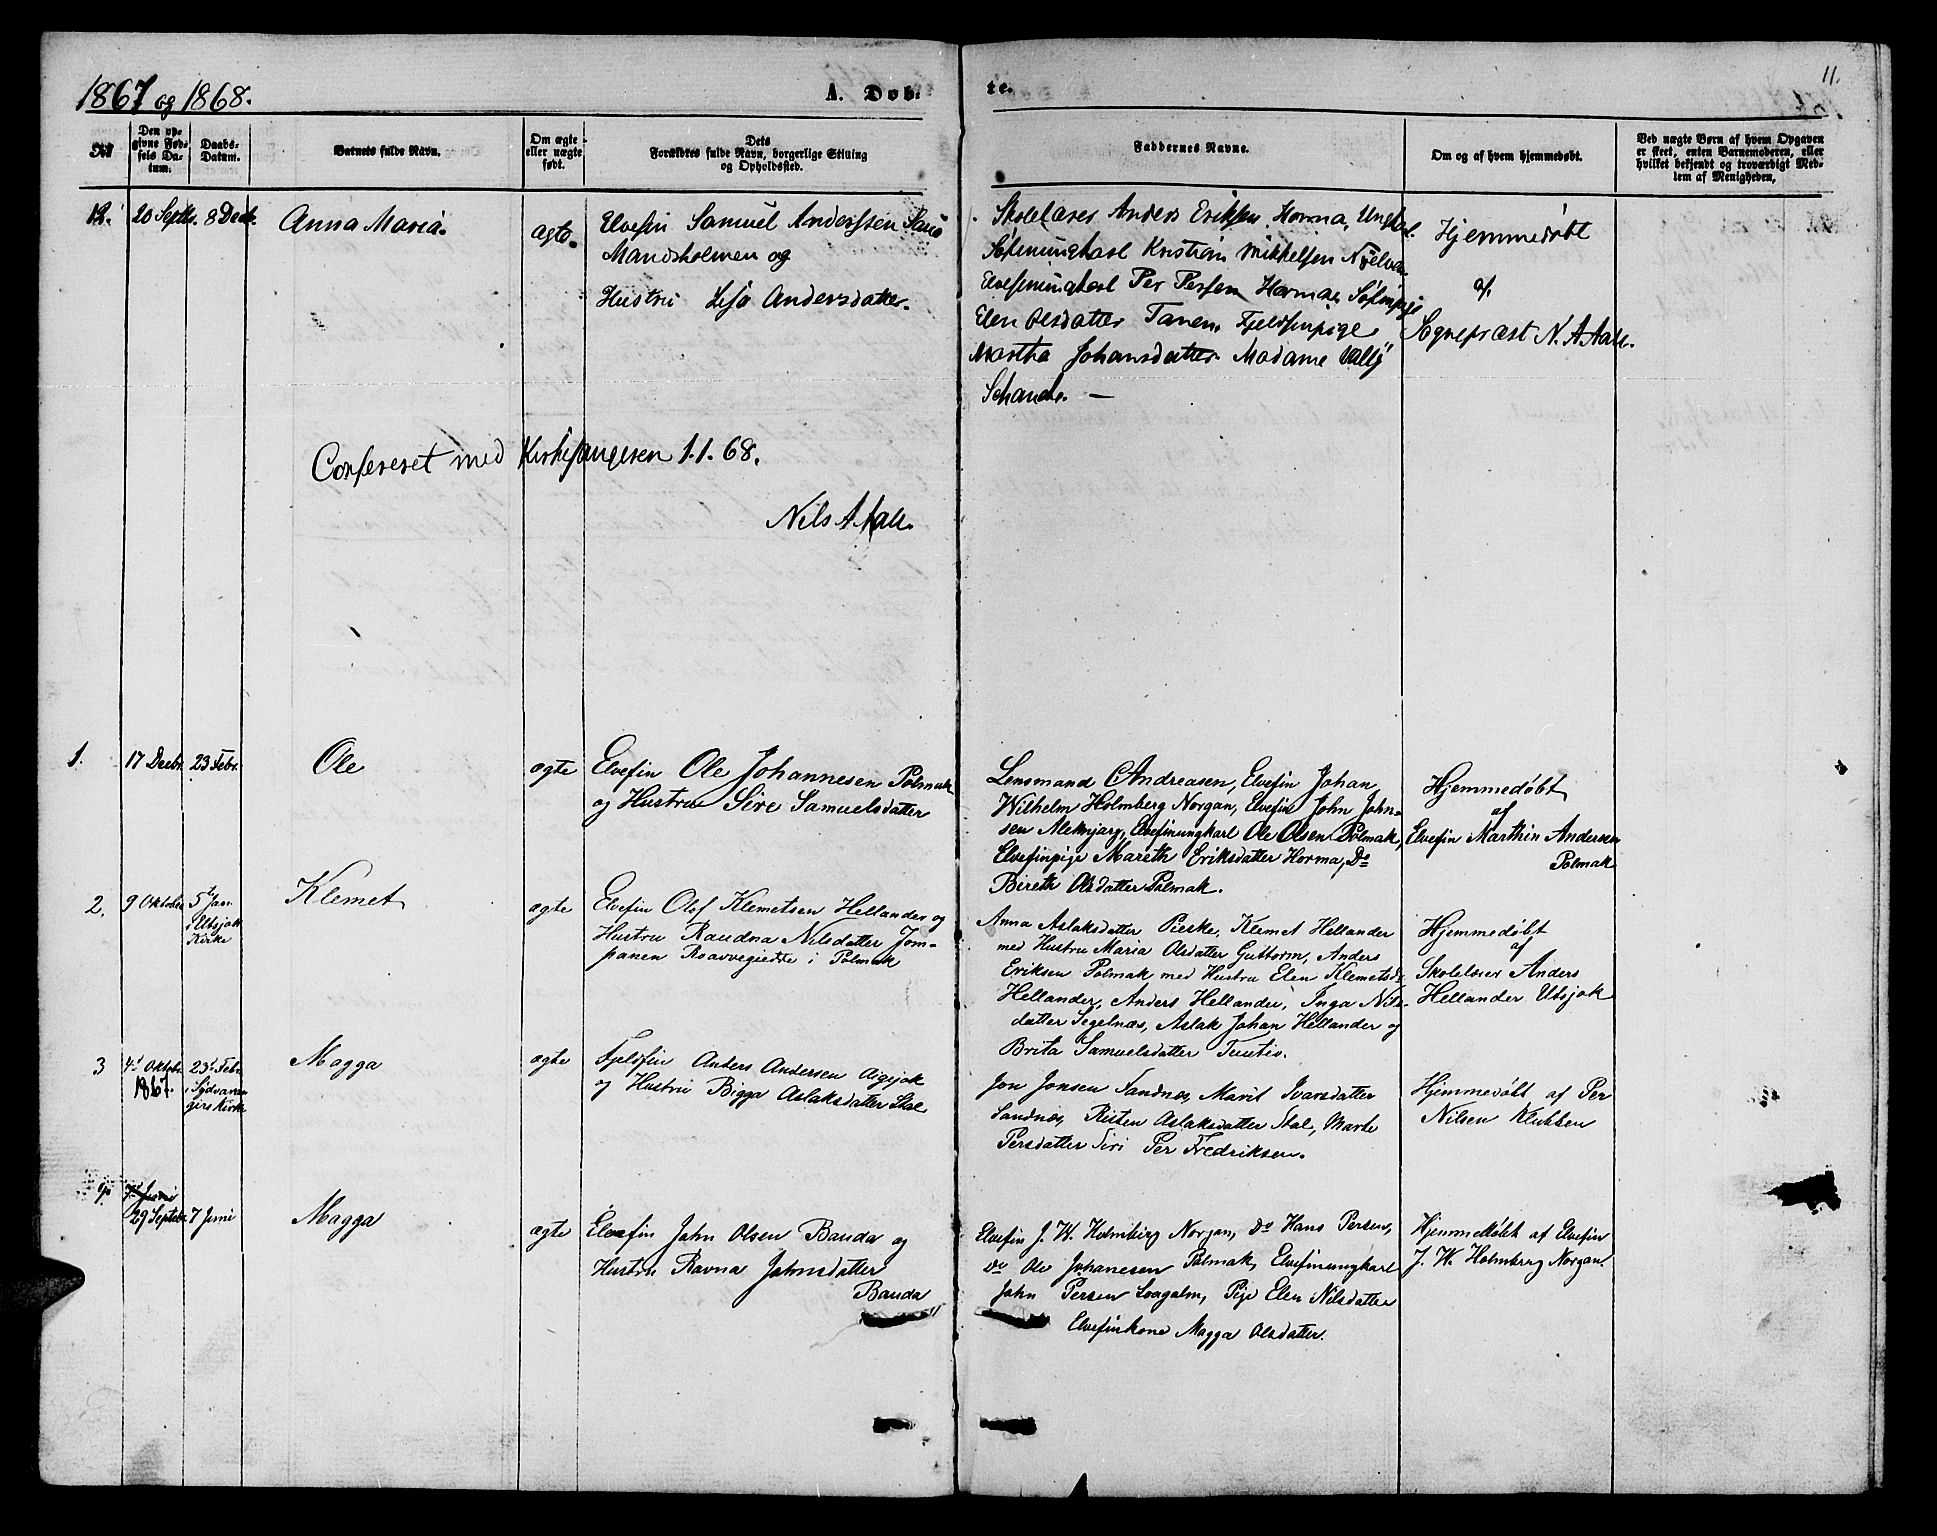 1867 og 1868.
A. Døb-
te.
11.
No
Den op-
givne Fød-
sels Da-
tum.
Daabs-
Datum.
Barnets fulde Navn.
Om ægte
eller uægte
født.
Dets
Forældres fulde Navn, borgerlige Stilling
og Opholdssted.
Faddernes Navne.
Om og af hvem hjemmedøbt.
Ved uægte Børn af hvem Opgaven
er skeet, enten Barnemoderen, eller
hvilket bekjendt og troværdigt Med-
lem af Menigheden.
12. 20 Septb. 8 Decb. Anna Maria. ægte.
Elvefin Samuel Anderssen
Mandsholmen og
Hustru Lisa Andersdatter.
Skolelærer Anders Eriksen Horma, Ungkarl.
Søfinungkarl Kristian Mikkelsen
Elvefinungkarl Per Persen Horma, Søfinpige
Elen Olsdatter Tanen, Fjeldfinpige
Martha Johansdatter Madame Vally
Schanche. —
Hjemmedøbt
af
Sognepræst N. A. Aall.
Confereret med Kirkesangeren 1.1.68.
Nils A Aall.
1. 17 Decbr. 23 Febr. Ole ægte
Elvefin Ole Johannesen Polmak
og Hustru Sire Samuelsdatter
Lensmand Andreasen, Elvefin Johan
Wilhelm Holmberg Norgan, Elvefin John John-
sen Aleknjarg, Elvefinungkarl Ole Olsen Polmak,
Elvefinpige Mareth Eriksdatter Horma, Do
Bireth Olsdatter Polmak.
Hjemmedøbt
af
Elvefin Marthin Andersen
Polmak
2. 9 Oktober 5te Jan.
i Utsjok
Kirke
Klemet ægte
Elvefin Olof Klemetsen Hellander og
Hustru Raudna Nilsdatter Jom-
panen Roavvegiedde i Polmak
Anna Aslaksdatter Pieske, Klemet Hellander
med Hustru Maria Olsdatter Guttorm, Anders
Eriksen Polmak med Hustru Elen Klemetsdr
Hellander, Anders Hellander, Inga Nils-
datter Segelnæs, Aslak Johan Hellander og
Brita Samuelsdatter Tuutio.
Hjemmedøbt
af
Skolelærer Anders
Hellander Utsjok
3 4d Oktobr.
1867.
23d Febr.
i Sydvaran-
gers Kirke
Magga ægte
Fjeldfin Anders Andersen Aigijok
og Hustru Bigga Aslaksdatter Stal
Jon Jonsen Sandnæs, Marit Ivarsdatter
Sandnæs, Risten Aslaksdatter Stal, Marte
Persdatter Siri Per Fredriksen.
Hjemmedøbt af Per
Nilsen Klubben
4. 7d Juni
29 Septebr. 7 Juni Magga ægte
Elvefin John Olsen Banda og
Hustru Ravna Johnsdatter
Banda
Elvefin J. W. Holmberg Norgan, Do Hans Persen,
Do Ole Johanesen Polmak, Elvefinungkarl
John Persen Loagalm, Pige Elen Nilsdatter
Elvefinkone Magga Olsdatter.
Hjemmedøbt af Elvefin
J. W. Holmberg Norgan.